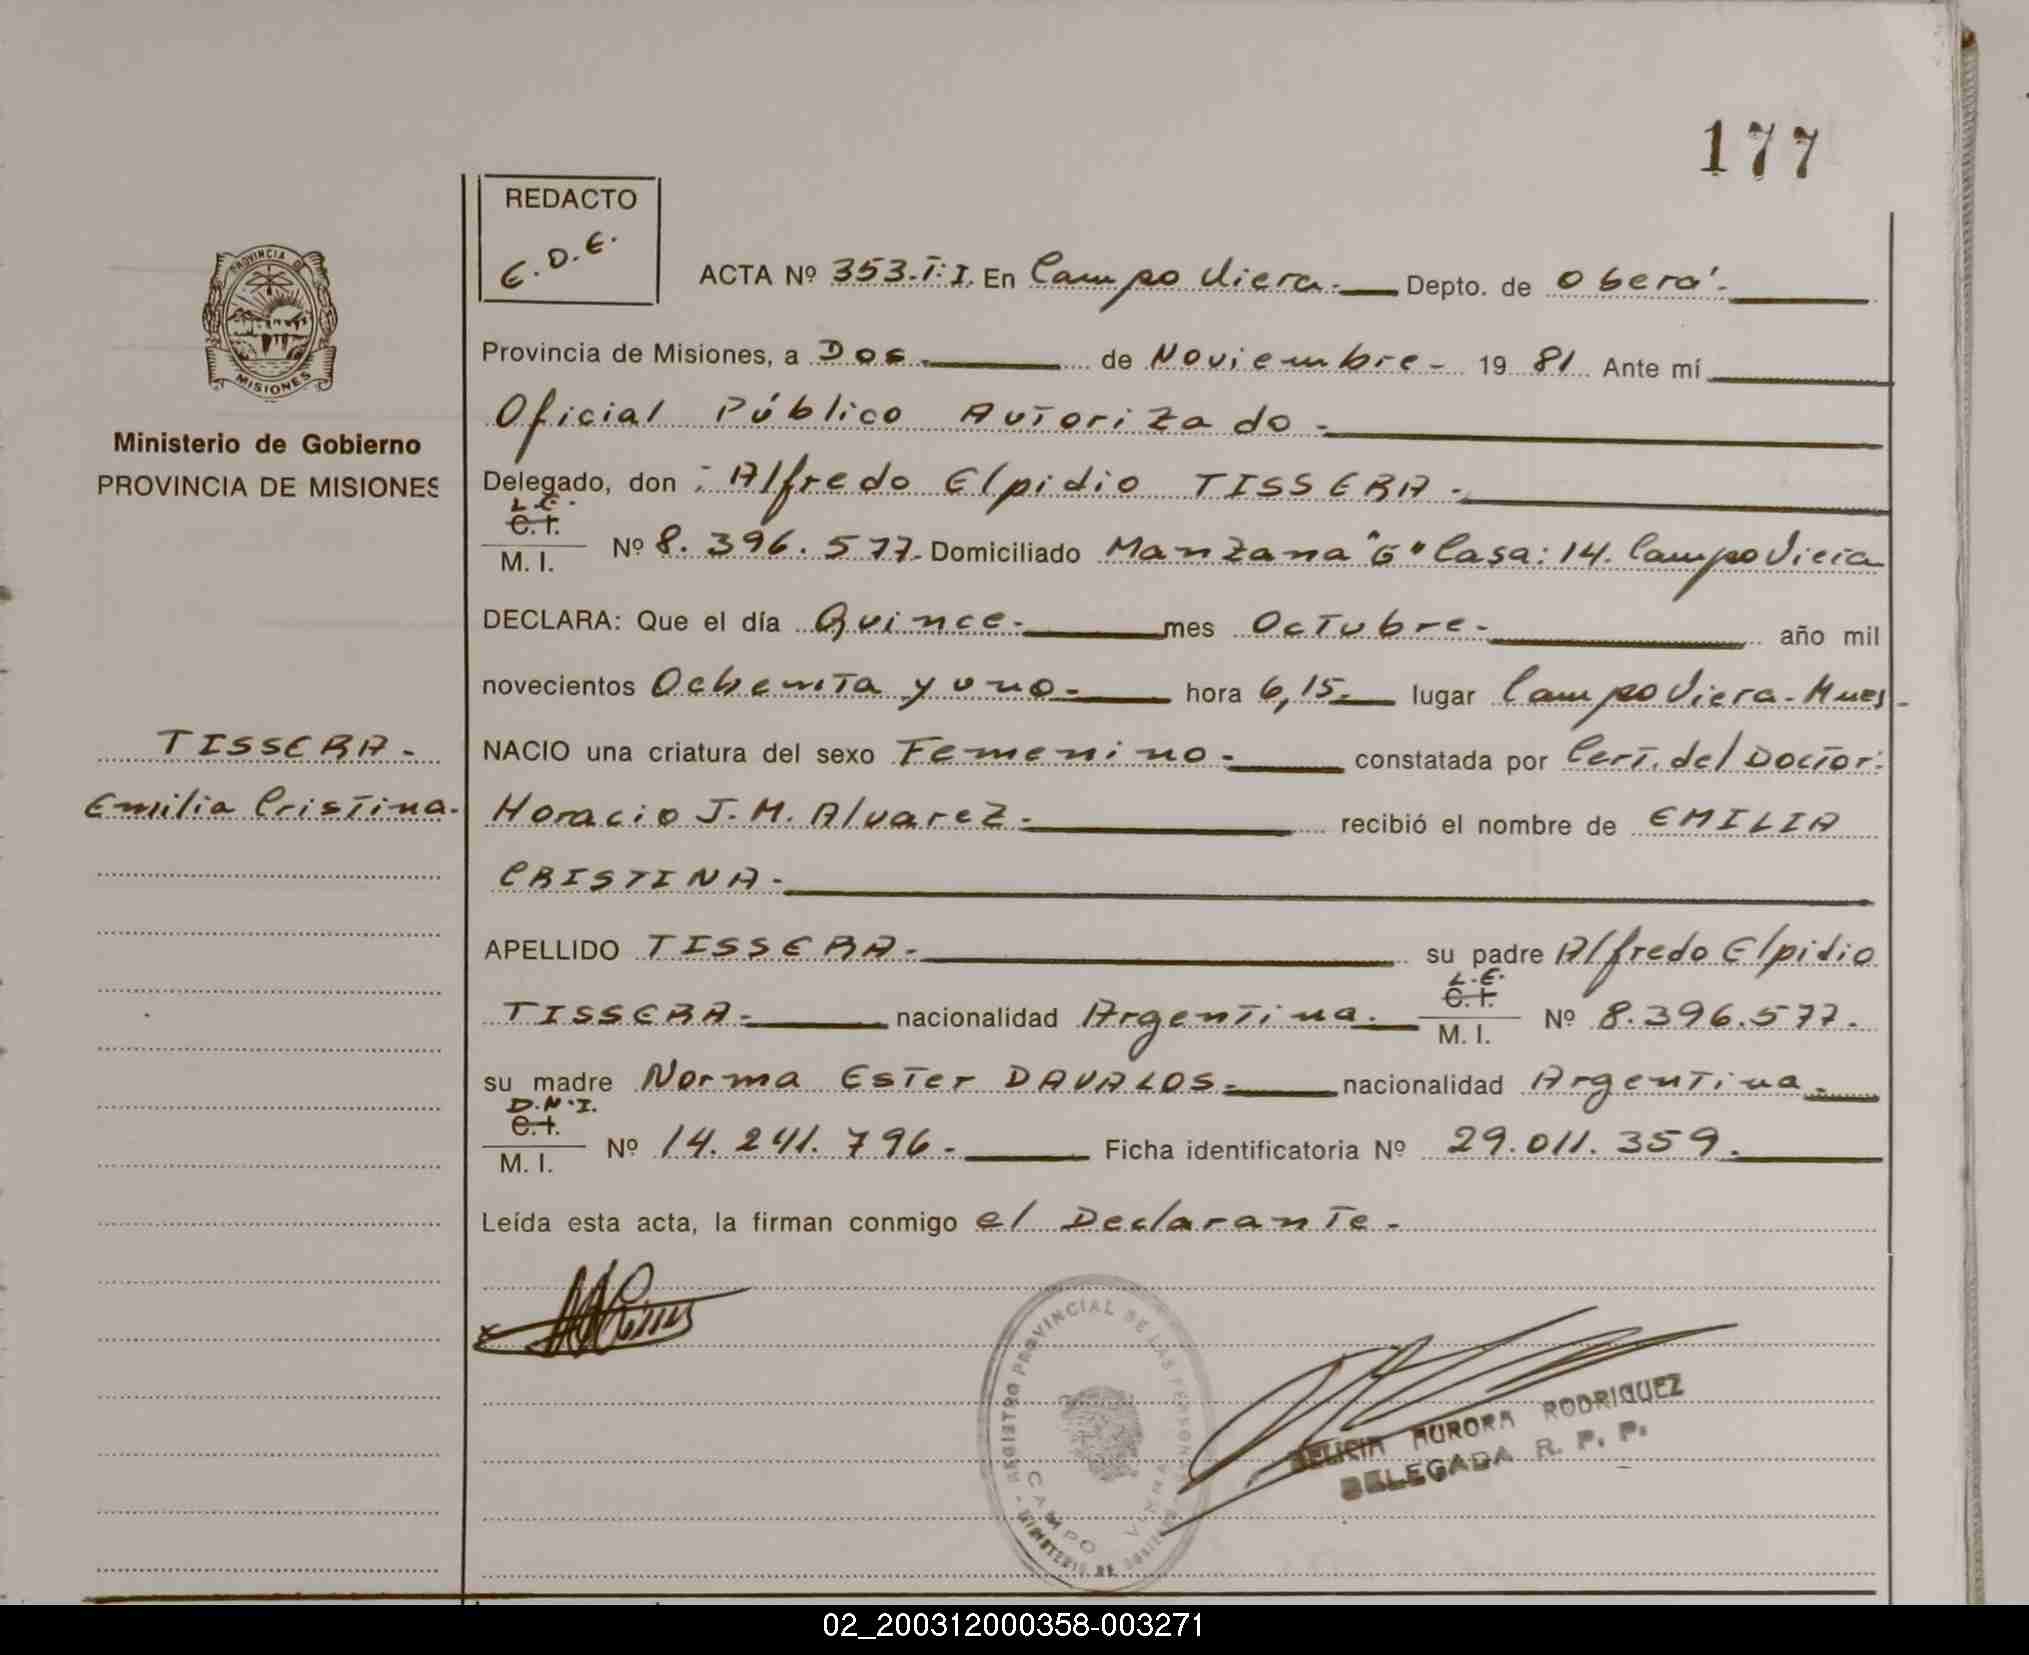 177
REDACTO
E.D.E.
PROVINCIA DE
MISIONES
Ministerio de Gobierno
PROVINCIA DE MISIONES
TISSERA.-
Emilia Cristina.
ACTA Nº 353.T:I. En Campo Viera.- Depto. de Oberá.-
Provincia de Misiones, a Dos.- de Noviembre.- 1981. Ante mí
Oficial Público Autorizado.-
Delegado, don :- Alfredo Elpidio TISSERA.-
L.E.
C.I.
M. I. Nº 8.396.577.- Domiciliado Manzana "G" Casa: 14. Campo Viera
DECLARA: Que el día Quince.- mes Octubre.- año mil
novecientos Ochenta y uno.- hora 6,15.- lugar Campo Viera.- Mnes.-
NACIO una criatura del sexo Femenino.- constatada por Cert. del Doctor:
Horacio J. M. Alvarez.- recibió el nombre de EMILIA
CRISTINA.-
APELLIDO TISSERA.- su padre Alfredo Elpidio
TISSERA.- nacionalidad Argentina.- L.E. C.I. M. I. Nº 8.396.577.-
su madre Norma Ester DAVALOS.- nacionalidad Argentina.-
D.N.I.
C.I.
M. I. Nº 14.241.796.- Ficha identificatoria Nº 29.011.359.-
Leída esta acta, la firman conmigo el Declarante.-
REGISTRO PROVINCIAL DE LAS PERSONAS
CAMPO VIERA
MINISTERIO DE
AURORA RODRIGUEZ
DELEGADA R. P. P.
02_200312000358-003271